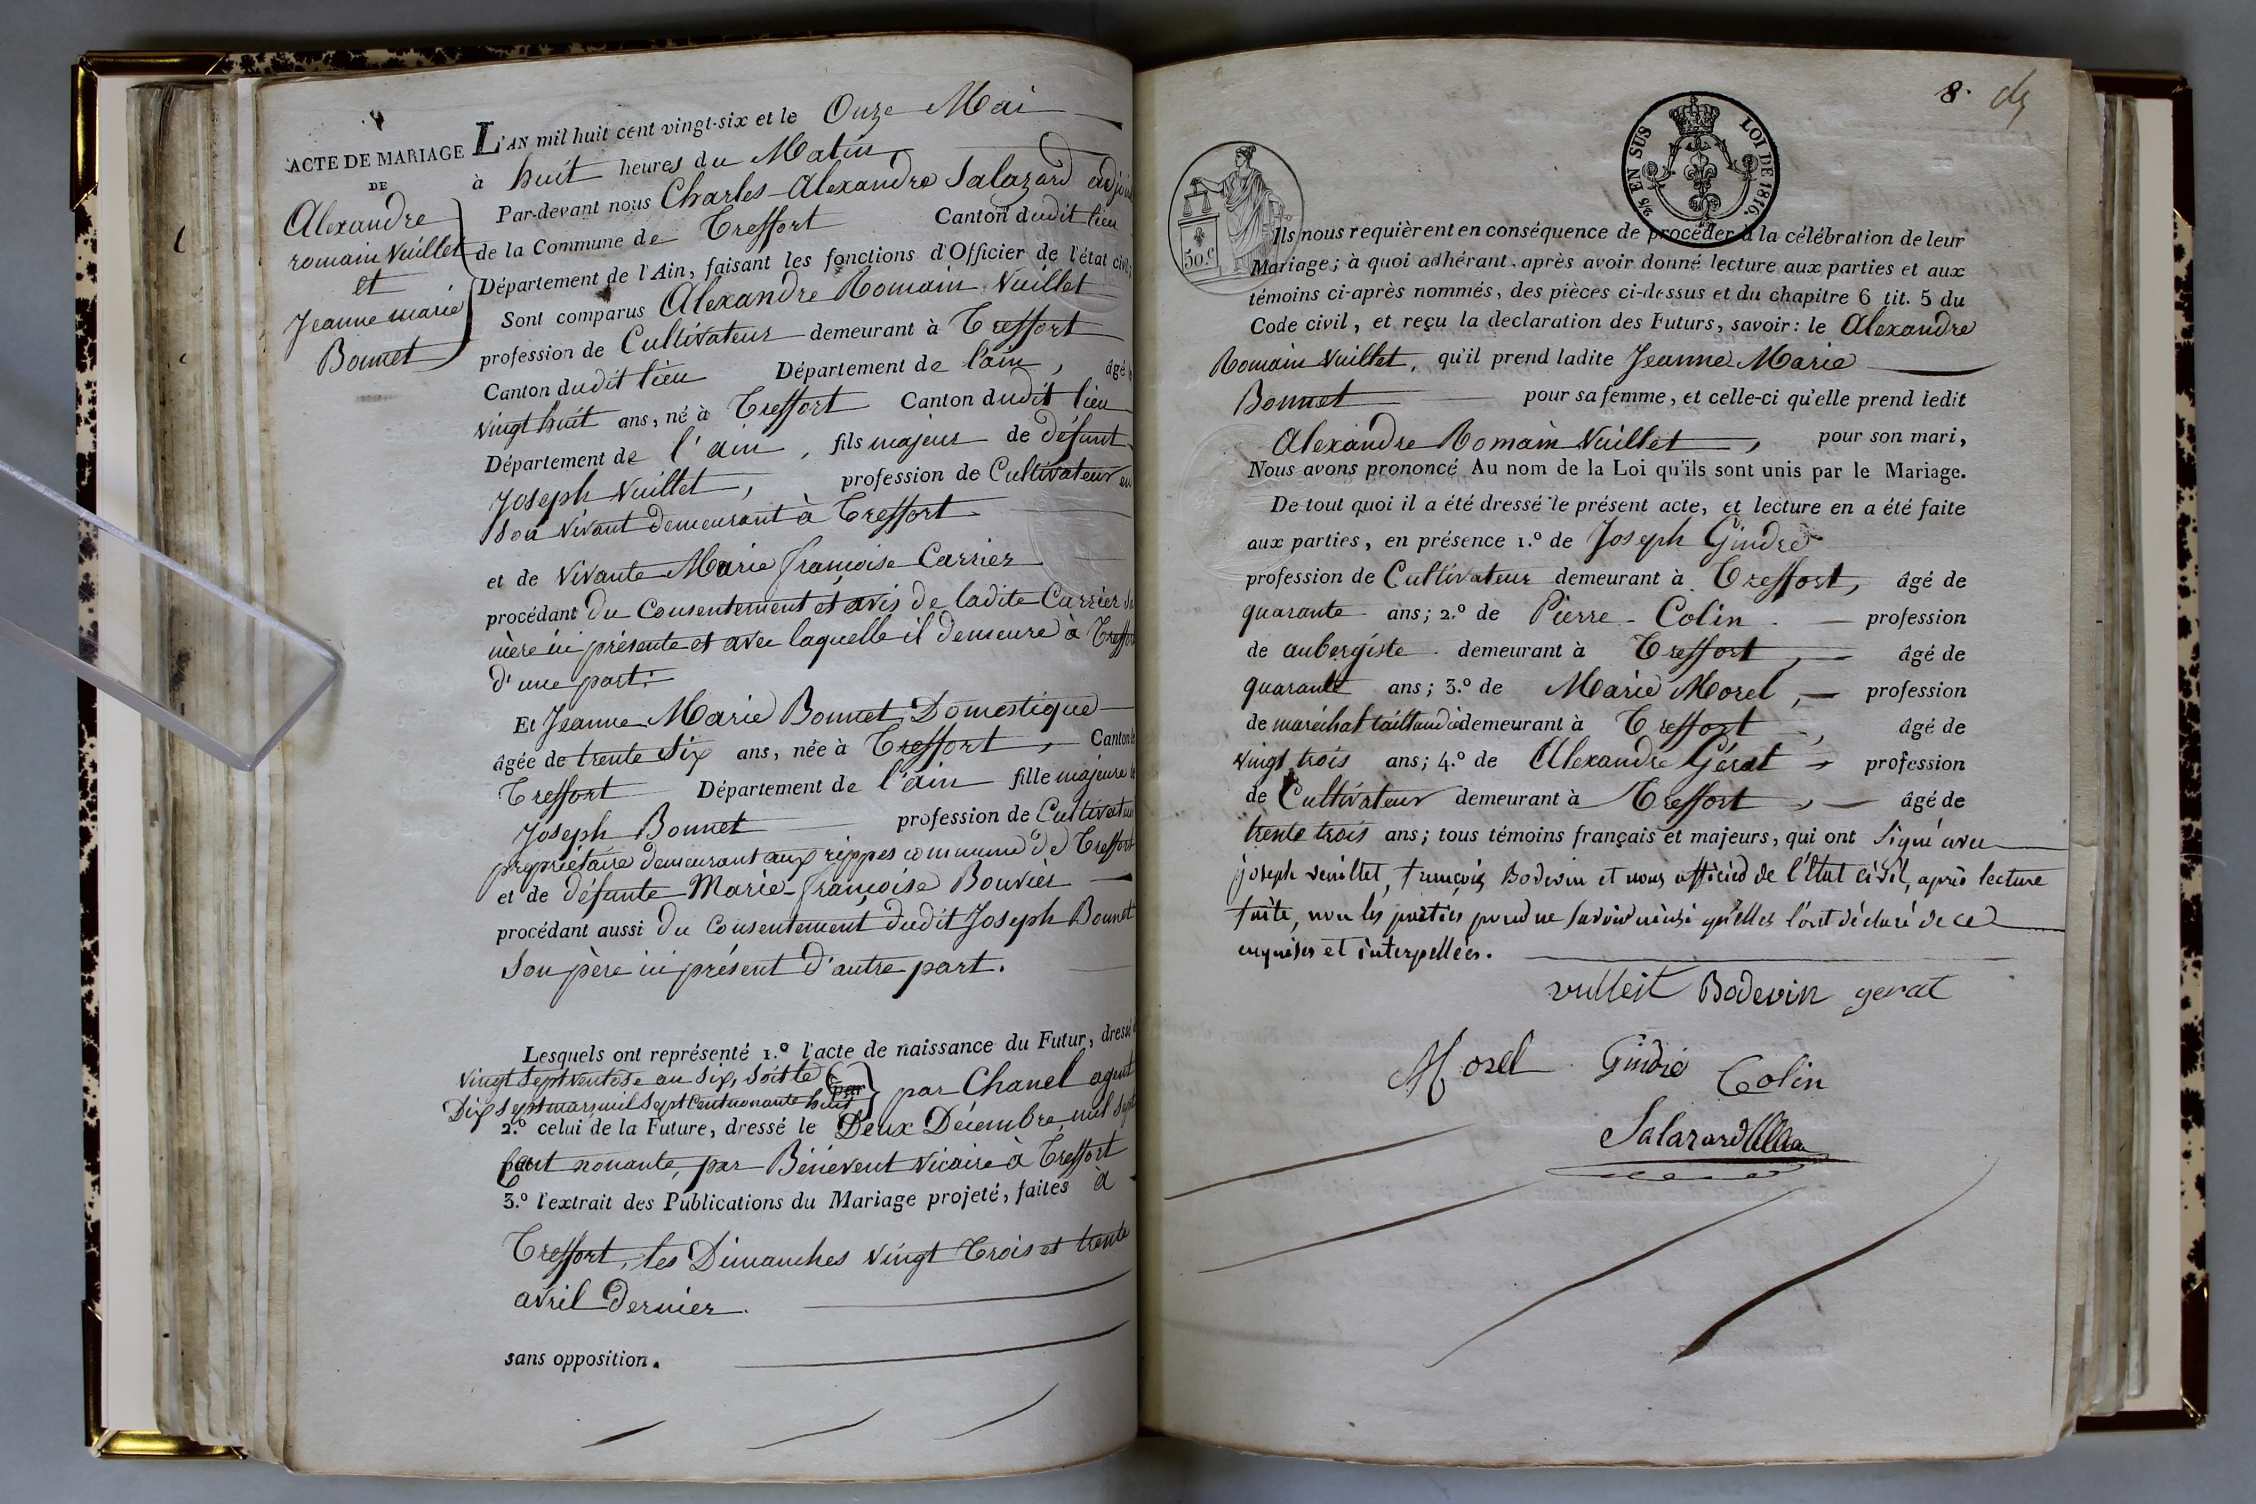 ACTE DE MARIAGE
DE
Alexandre
romain Vuillet
et
Jeanne marie
Bonnet
L'AN mil huit cent vingt-six et le Onze Mai
à huit heures du Matin
Par-devant nous Charles-Alexandre Salazard adjoint
de la Commune de Treffort Canton dudit lieu
Département de l'Ain, faisant les fonctions d'Officier de l'état civil,
Sont comparus Alexandre Romain Vuillet
profession de Cultivateur demeurant à Treffort
Canton dudit lieu Département de l'ain, âgé de
vingt huit ans, né à Treffort Canton dudit lieu
Département de l'ain, fils majeur de défunt
Joseph Vuillet, profession de Cultivateur en
Son vivant demeurant à Treffort
et de vivante Marie françoise Carrier
procédant du Consentement et avis de ladite Carrier Sa
mère ici présente et avec laquelle il demeure à Treffort
d'une part:
Et Jeanne Marie Bonnet, Domestique
âgée de trente Six ans, née à Treffort, Canton de
Treffort Département de l'ain fille majeure de
Joseph Bonnet profession de Cultivateur
propriétaire demeurant aux rippes commune de Treffort
et de défunte Marie-françoise Bouvier
procédant aussi du Consentement dudit Joseph Bonnet
Son père ici présent d'autre part.
Lesquels ont représenté 1.º l'acte de naissance du Futur, dressé
vingt Sept ventose an Six, Soit le
Dix Sept mars mil Sept Cent nonante huit par par Chanel agent
2.º celui de la Future, dressé le Deux Décembre mil Sept
Cent nonante, par Bénévent Vicaire à Treffort
3.º l'extrait des Publications du Mariage projeté, faites à
Treffort, les Dimanches vingt Trois et trente
avril Dernier.
sans opposition.
8.
2/5 EN SUS LOI DE 1816.
50.C
Ils nous requièrent en conséquence de procéder à la célébration de leur
Mariage; à quoi adhérant, après avoir donné lecture aux parties et aux
témoins ci-après nommés, des pièces ci-dessus et du chapitre 6 tit. 5 du
Code civil, et reçu la declaration des Futurs, savoir: le Alexandre
Romain Vuillet, qu'il prend ladite Jeanne Marie
Bonnet pour sa femme, et celle-ci qu'elle prend ledit
Alexandre Romain Vuillet, pour son mari,
Nous avons prononcé Au nom de la Loi qu'ils sont unis par le Mariage.
De tout quoi il a été dressé le présent acte, et lecture en a été faite
aux parties, en présence 1.º de Joseph Gindre
profession de Cultivateur demeurant à Treffort, âgé de
quarante ans; 2.º de Pierre Colin profession
de aubergiste demeurant à Treffort, âgé de
quarante ans; 3.º de Marie Morel, profession
de maréchal taillandié demeurant à Treffort, âgé de
vingt trois ans; 4.º de Alexandre Gérat profession
de Cultivateur demeurant à Treffort, âgé de
trente trois ans; tous témoins français et majeurs, qui ont Signé avec
joseph vuillet, françois Bodevin et nous officier de l'Etat civil, après lecture
faite, non les parties pour ne Savoir ainsi qu'elles l'ont déclaré de ce
enquises et interpellées.
vulleit Bodevin gerat
Morel Gindre Colin
Salazard